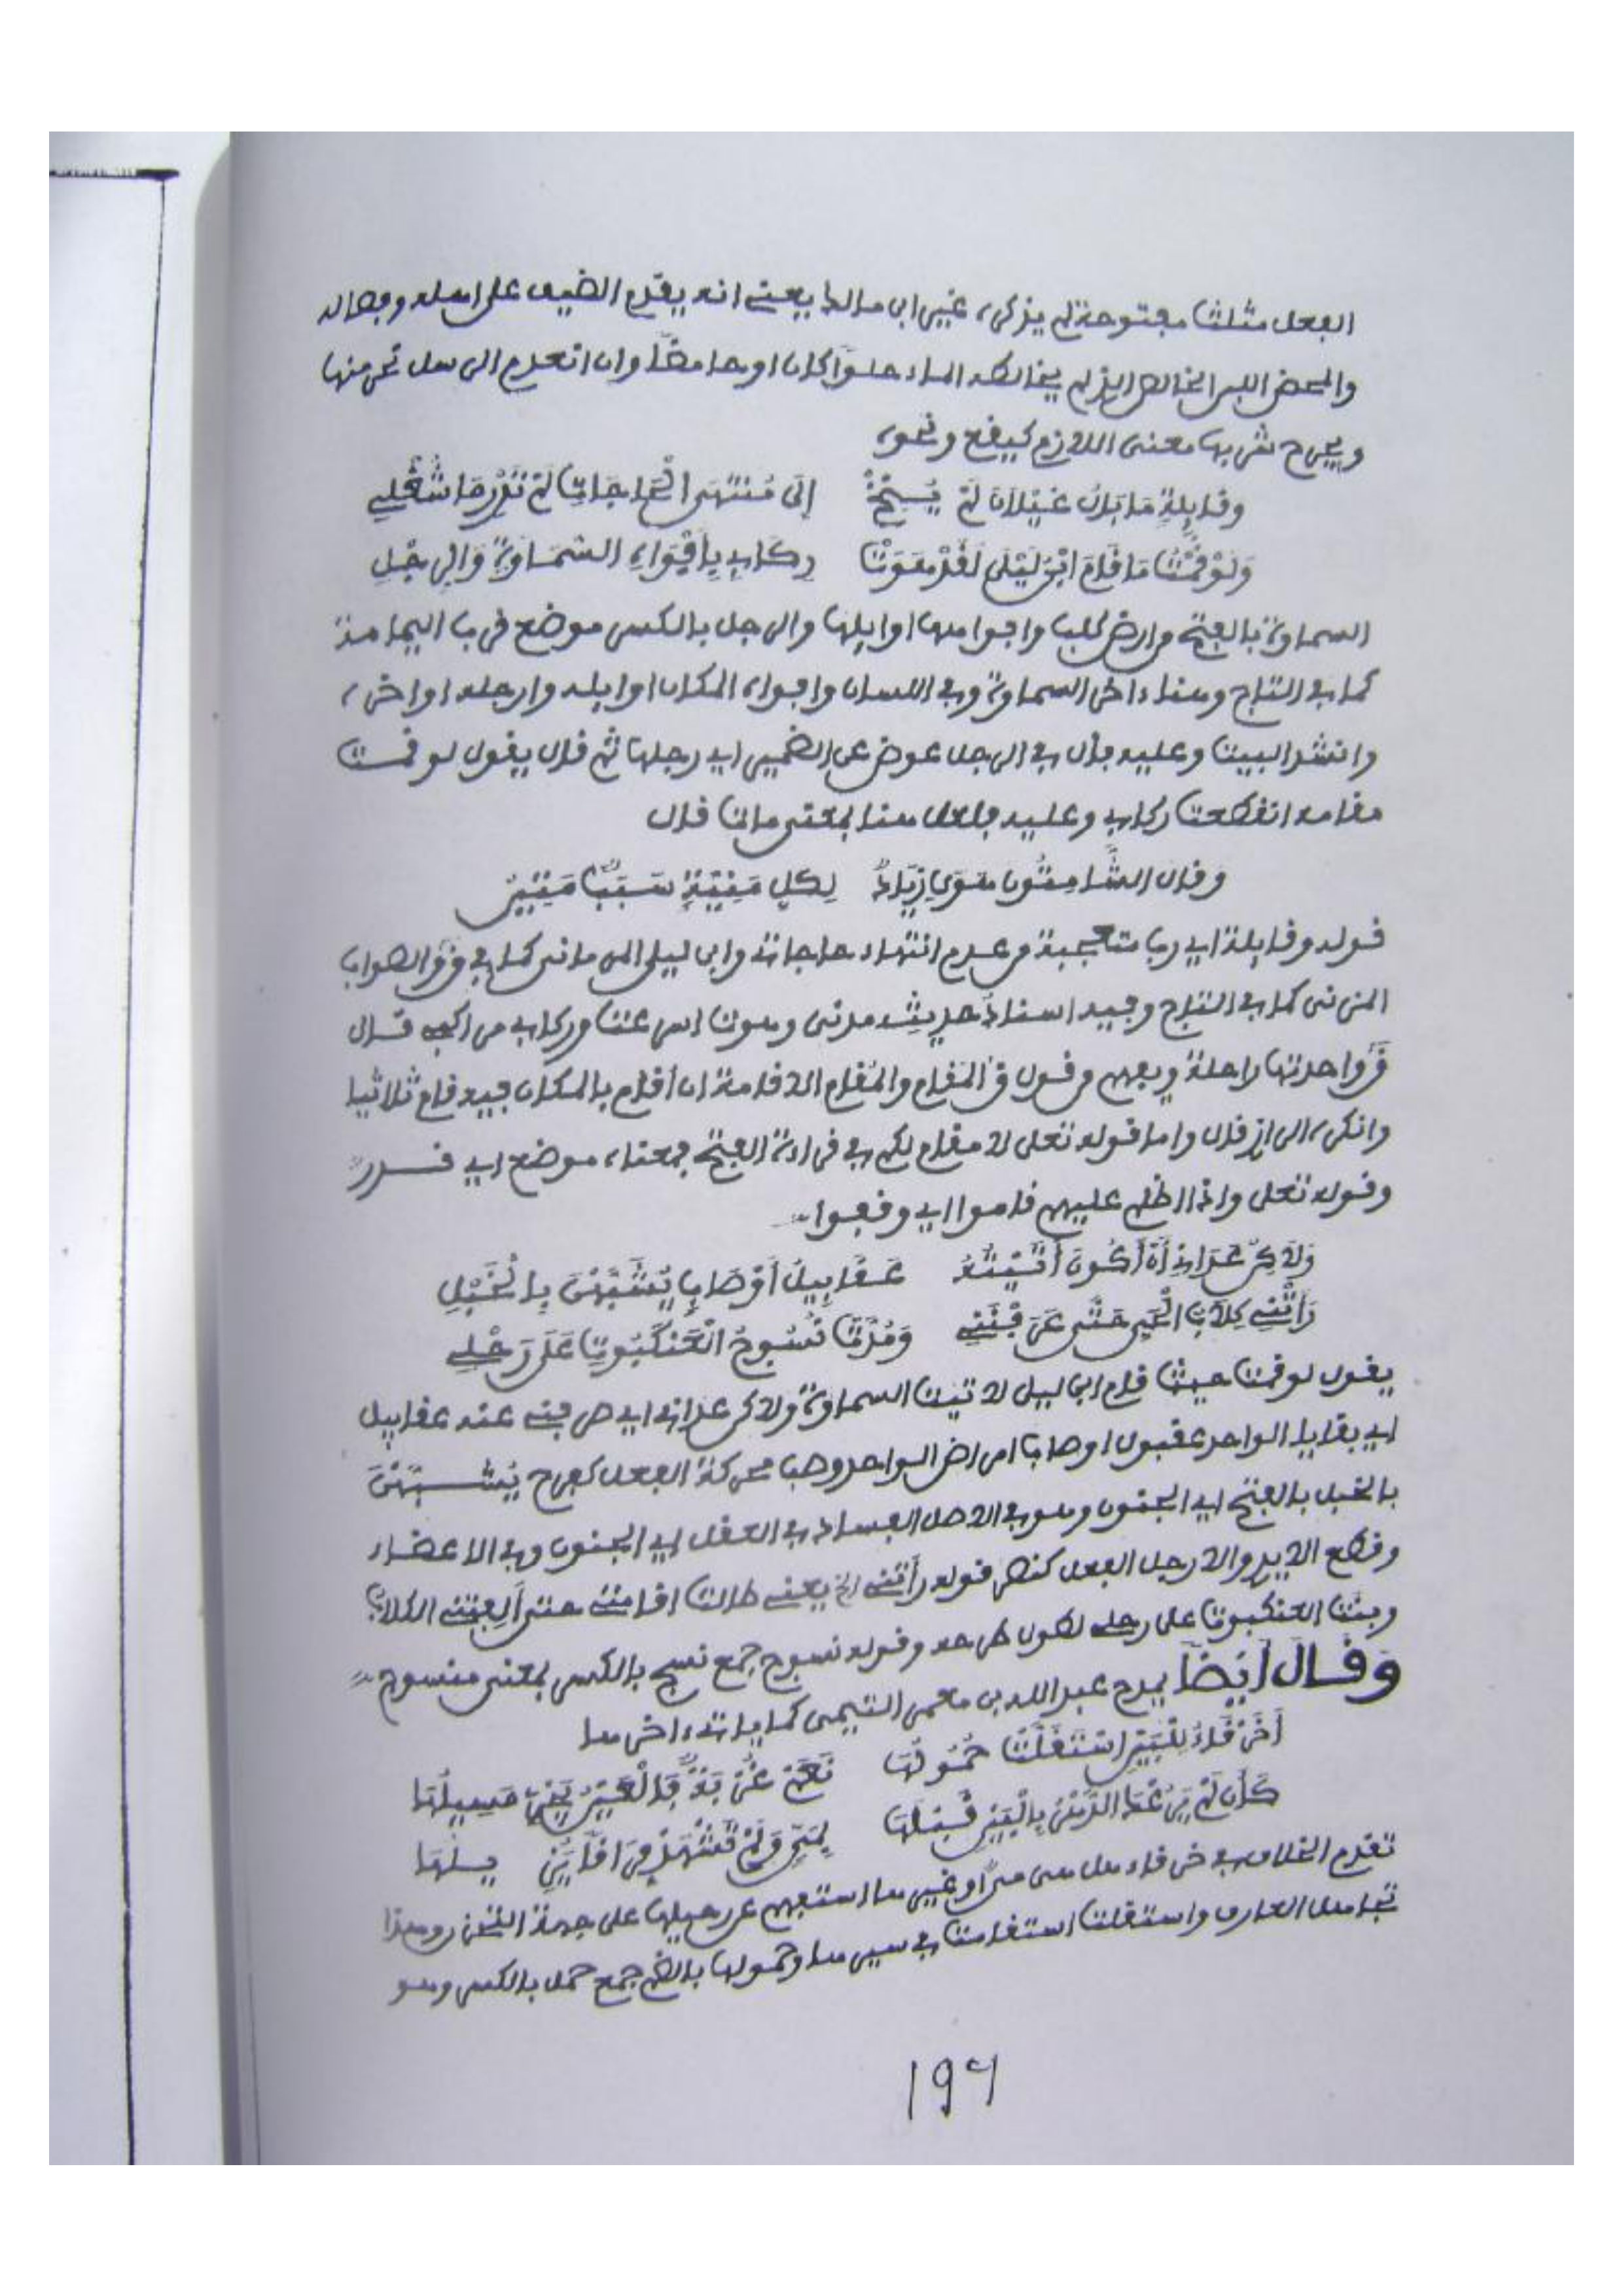 الفعل مثلثا مفتوحة لم يذكره غير ابن مالك يعني انه يقدم الضيف على اهله وفصاله
والمحض اللبن الخالص الذي لم يخالطه الماء حلوا كان او حامضا وان انعدم الرسل نحر منها
ويجرح شربها معنى اللازم كيفع ونحوه
وقَايِلةٍ مَا بَالُ غَيْلَانَ لَمْ يُنِخْ إلَى مُنْتَهَى الْحَاجَاتِ لَمْ تَدْرِ مَا شُغْلِي
وَلَوْ قُمْتُ مَا قَامَ ابْنُ لَيْلَى لَقَدْ هَوَتْ رِكَابِي بِأَفْوَاهِ السَّمَاوَةِ وَالرِّجْلِ
السماوة بالفتح من ارض كلب وافواهها اوايلها والرجل بالكسر موضع قرب اليمامة
كما في التاج وهنا ءاخر السماوة وفي اللسان وافواه المكان اوايله وارجله اواخره
وانشد البيت وعليه فأل في الرجل عوض عن الضمير اي رجلها ثم قال يقول لو قمت
مقامه انقطعت ركابي وعليه فلعل هنا بمعنى مات قال
وقال الشَّامِتُون هَوَى زِيَادٌ لِكُلِّ مَنِيَّةٍ سَبَبٌ مُّبِينُ
قوله وقايلة اي رب متعجبة من عدم انتهاء حاجاته وابن ليلى المرمانى كما في ق والصواب
المزنى كما في التاج وفيه اسناد حديثه مدنى وهوت اسرعت وركاب من اكب قال
ق واحدتها راحلة ويفهم من قول ق المَقام والمُقام الاقامة ان اقام بالمكان فيه قام ثلاثيا
وانكره الرازى قال واما قوله تعلى لا مقام لكم في قراءة الفتح فمعناه موضع اي قرر
وقوله تعلى واذا اظلم عليهم قاموا اي وقفوا
وَلَاكِنْ عَدَانِي أَنْ أَكُونَ أَتَيْتُهُ عَقَابِيلُ أَوْصَابٍ يُشَبَّهْنَ بِالْخَبْلِ
رَأتْنِي كِلَابُ الْحَيِّ حَتَّى عَرَفْنَنِي وَمُدَّتْ نُسُوجُ الْعَنْكَبُوتِ عَلَى رَحْلِي
يقول لو قمت حيث قام ابن ليلى لاتيت السماوة ولاكن عدانى اي صرفنى عنه عقابيل
اي بقايا الواحد عقبول اوصاب امراض الواحد وصب محركة الفعل كفرح يُشَبَّهْنَ
بالخبل بالفتح اي الجنون وهو في الاصل الفساد في العقل اي الجنون وفي الاعضاء
وقطع الايدي والارجل الفعل كنصر قوله رأتني الخ يعني طالت اقامتي حتى ألِفتني الكلاب
وبنت العنكبوت على رحلي لطول طرحه وقوله نسوج جمع نسج بالكسر بمعنى منسوج
وَقَالَ أيْضًا يمدح عبد الله بن معمر التيمى كما ياتي ءاخرها
أَخَرْقَاءُ لِلْبَيْنِ اسْتَقَلَّتْ حُمُولُهَا نَعَمْ غُرْبَةً فَالْعَيْنُ يَجْرِي مَسِيلُهَا
كَأَن لَّمْ يَرُعْكَ الدَّهْرُ بِالْبَيْنِ قَبْلَهَا لِمَيٍّ وَلَمْ تَشْهَدْ فِرَاقًا يُزِيلُهَا
تقدم الخلاف في خرقاء هل هي مي او غيرها استفهم عن رحيلها على جهة التحزن وهذا
تجاهل العارف واستقلت استقامت في سيرها وحمولها بالضم جمع حمل بالكسر وهو
١٩٦